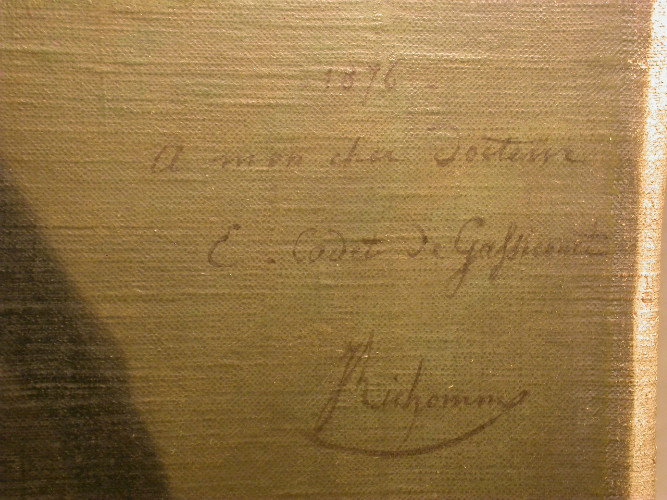 1876
A mon cher Docteur
E. Cadet de Gassicourt
JRichomme